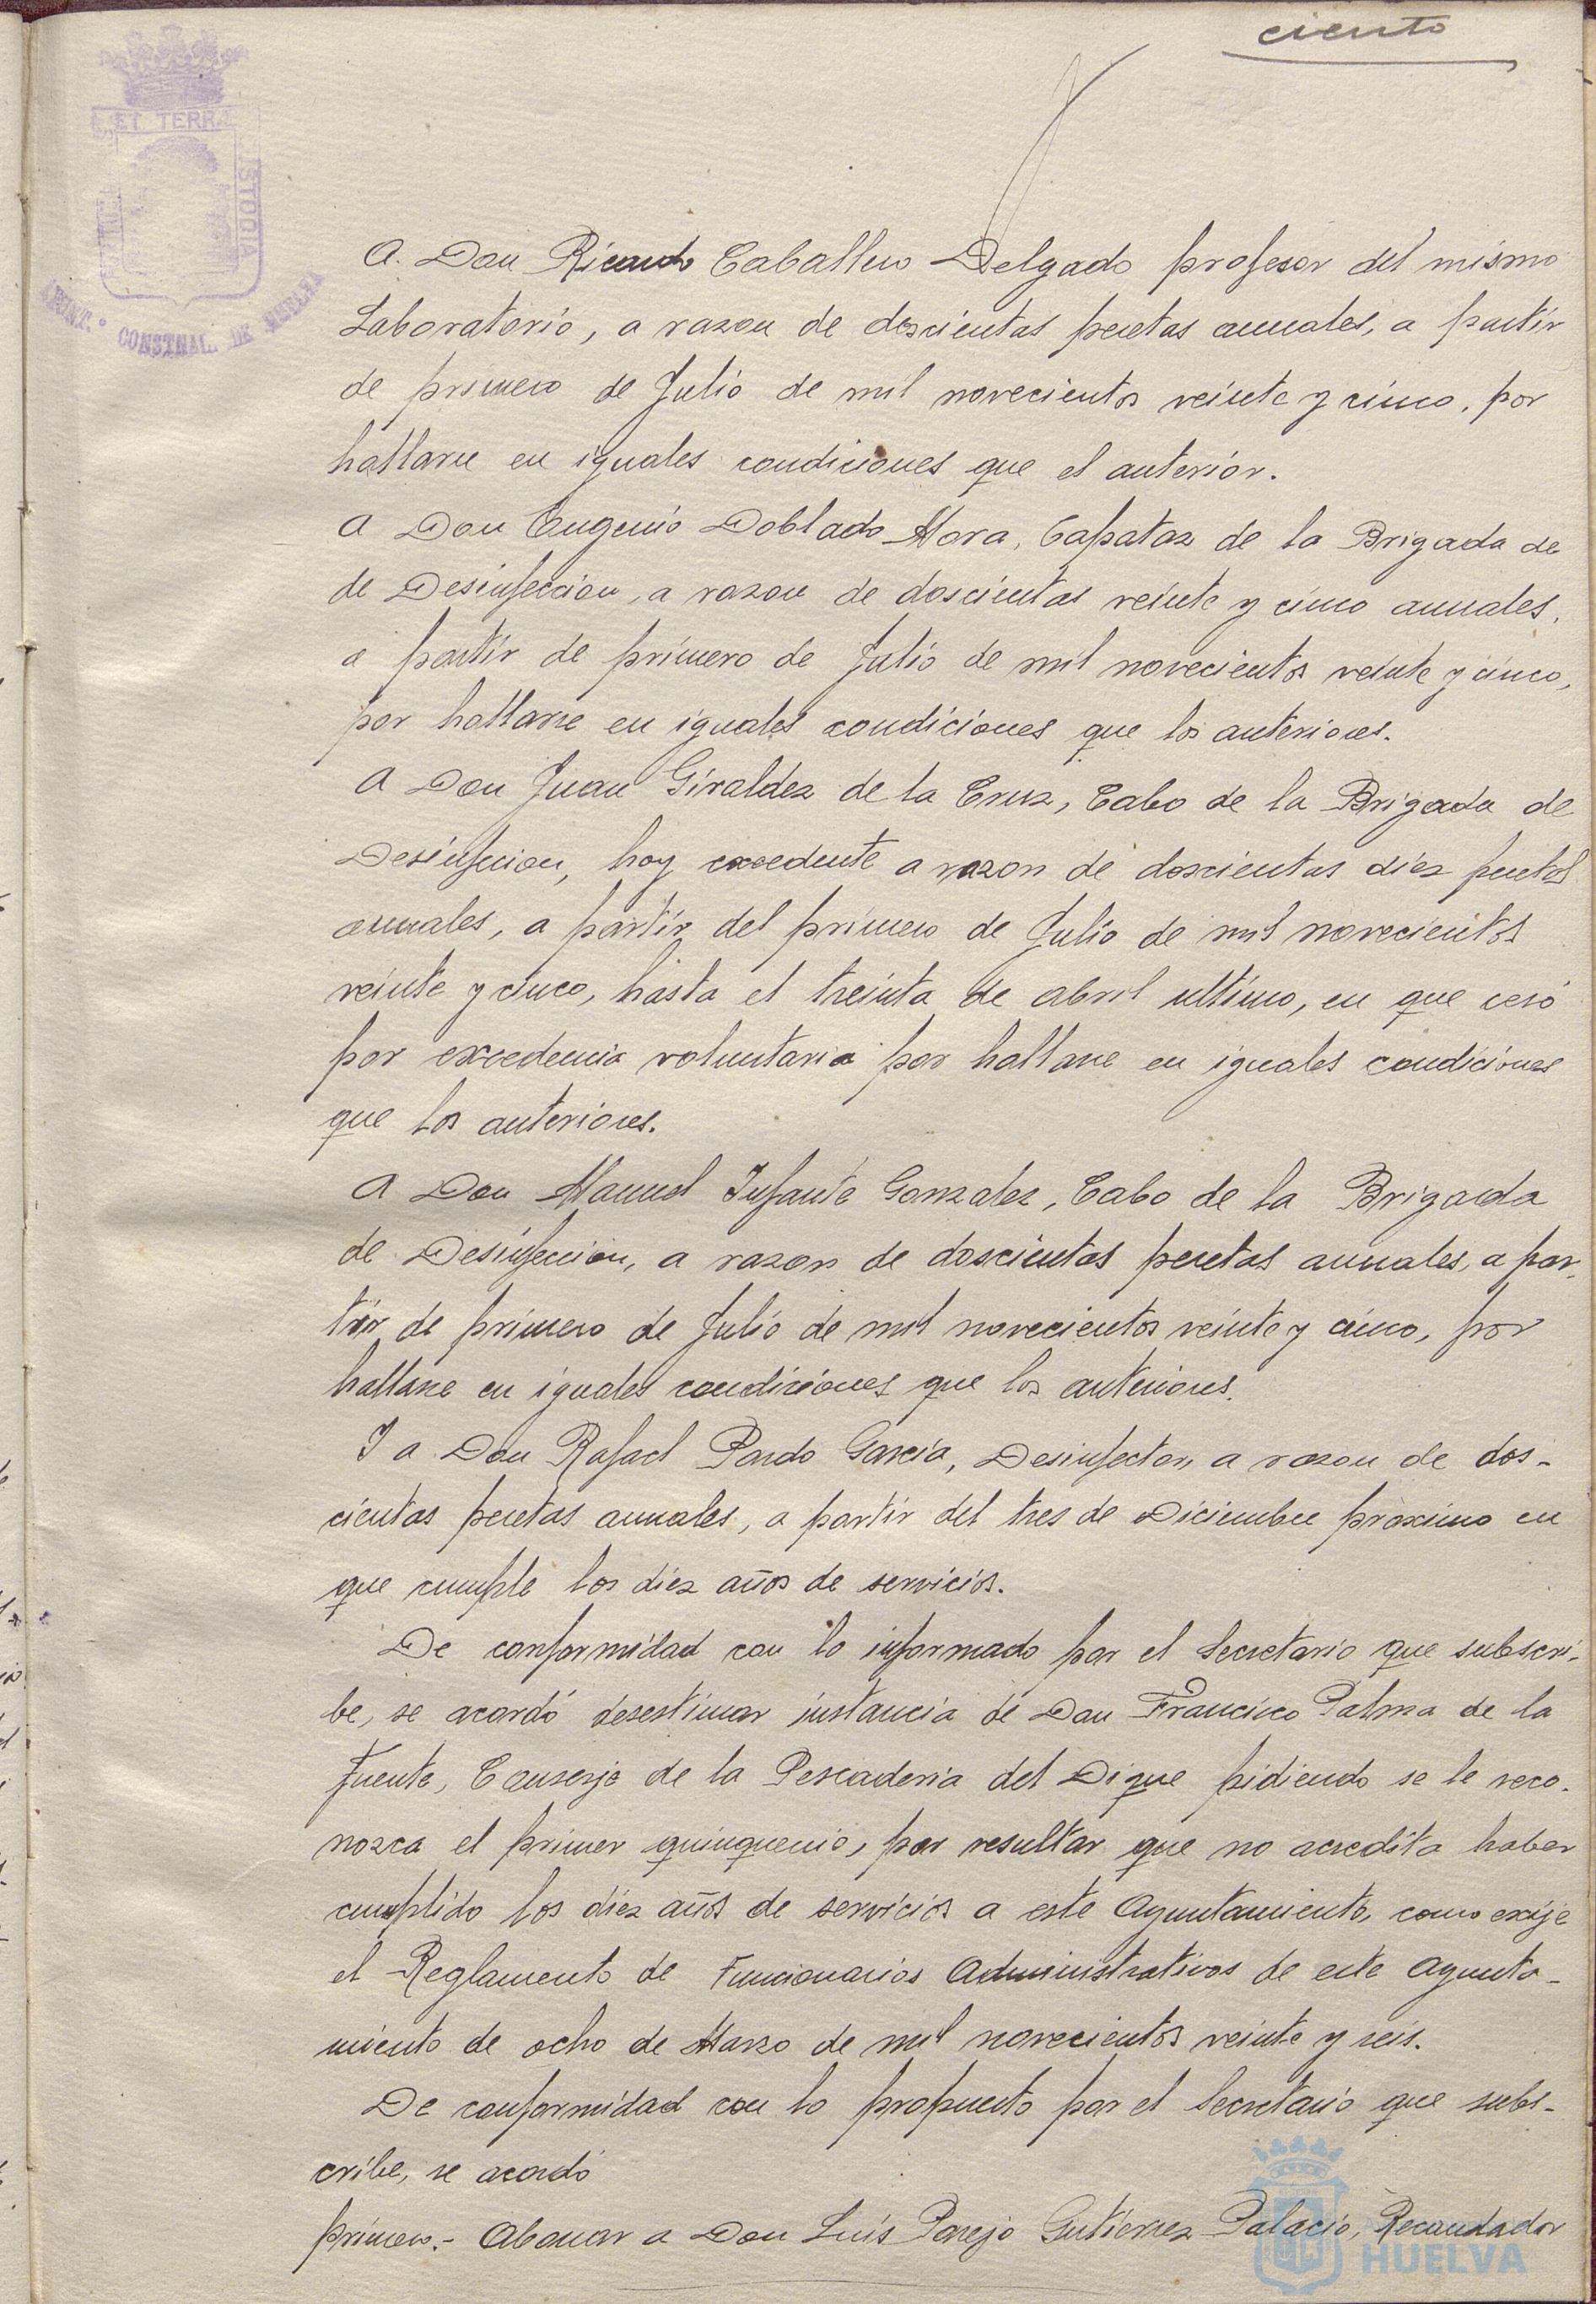 ciento
ET TERR
STODIA
AYUNT.º CONSTNAL. DE HUELVA
A. Don Ricardo Caballero Delgado profesor del mismo
Laboratorio, a razon de doscientas pesetas anuales, a partir
de primero de Julio de mil novecientos veinte y cinco, por
hallarse en iguales condiciones que el anterior.
A Don Eugenio Doblado Mora, Capataz de la Brigada de
de Desinfeccion, a razon de doscientas veinte y cinco anuales,
a partir de primero de Julio de mil novecientos veinte y cinco,
por hallarse en iguales condiciones que los anteriores.
A Don Juan Giraldez de la Cruz, Cabo de la Brigada de
Desinfeccion, hoy excedente a razon de doscientas diez pesetas
anuales, a partir del primero de Julio de mil novecientos
veinte y cinco, hasta el treinta de abril ultimo, en que cesó
por excedencia voluntaria por hallarse en iguales condiciones
que los anteriores.
A Don Manuel Infante Gonzalez, Cabo de la Brigada
de Desinfeccion, a razon de doscientas pesetas anuales, a par-
tir de primero de Julio de mil novecientos veinte y cinco, por
hallarse en iguales condiciones que los anteriores.
Y a Don Rafael Pardo Garcia, Desinfector, a razon de dos-
cientas pesetas anuales, a partir del tres de Diciembre próximo en
que cumple los diez años de servicios.
De conformidad con lo informado por el Secretario que subscri-
be, se acordó desestimar instancia de Don Francisco Palma de la
Fuente, Conserje de la Pescaderia del Dique pidiendo se le reco-
nozca el primer quinquenio, por resultar que no acredita haber
cumplido los diez años de servicios a este Ayuntamiento, como exije
el Reglamento de Funcionarios Administrativos de este Ayunta-
miento de ocho de Marzo de mil novecientos veinte y seis.
De conformidad con lo propuesto por el Secretario que subs-
cribe, se acordó
primero.- Abonar a Don Luis Parejo Gutierrez Palacio, Recaudador
HUELVA